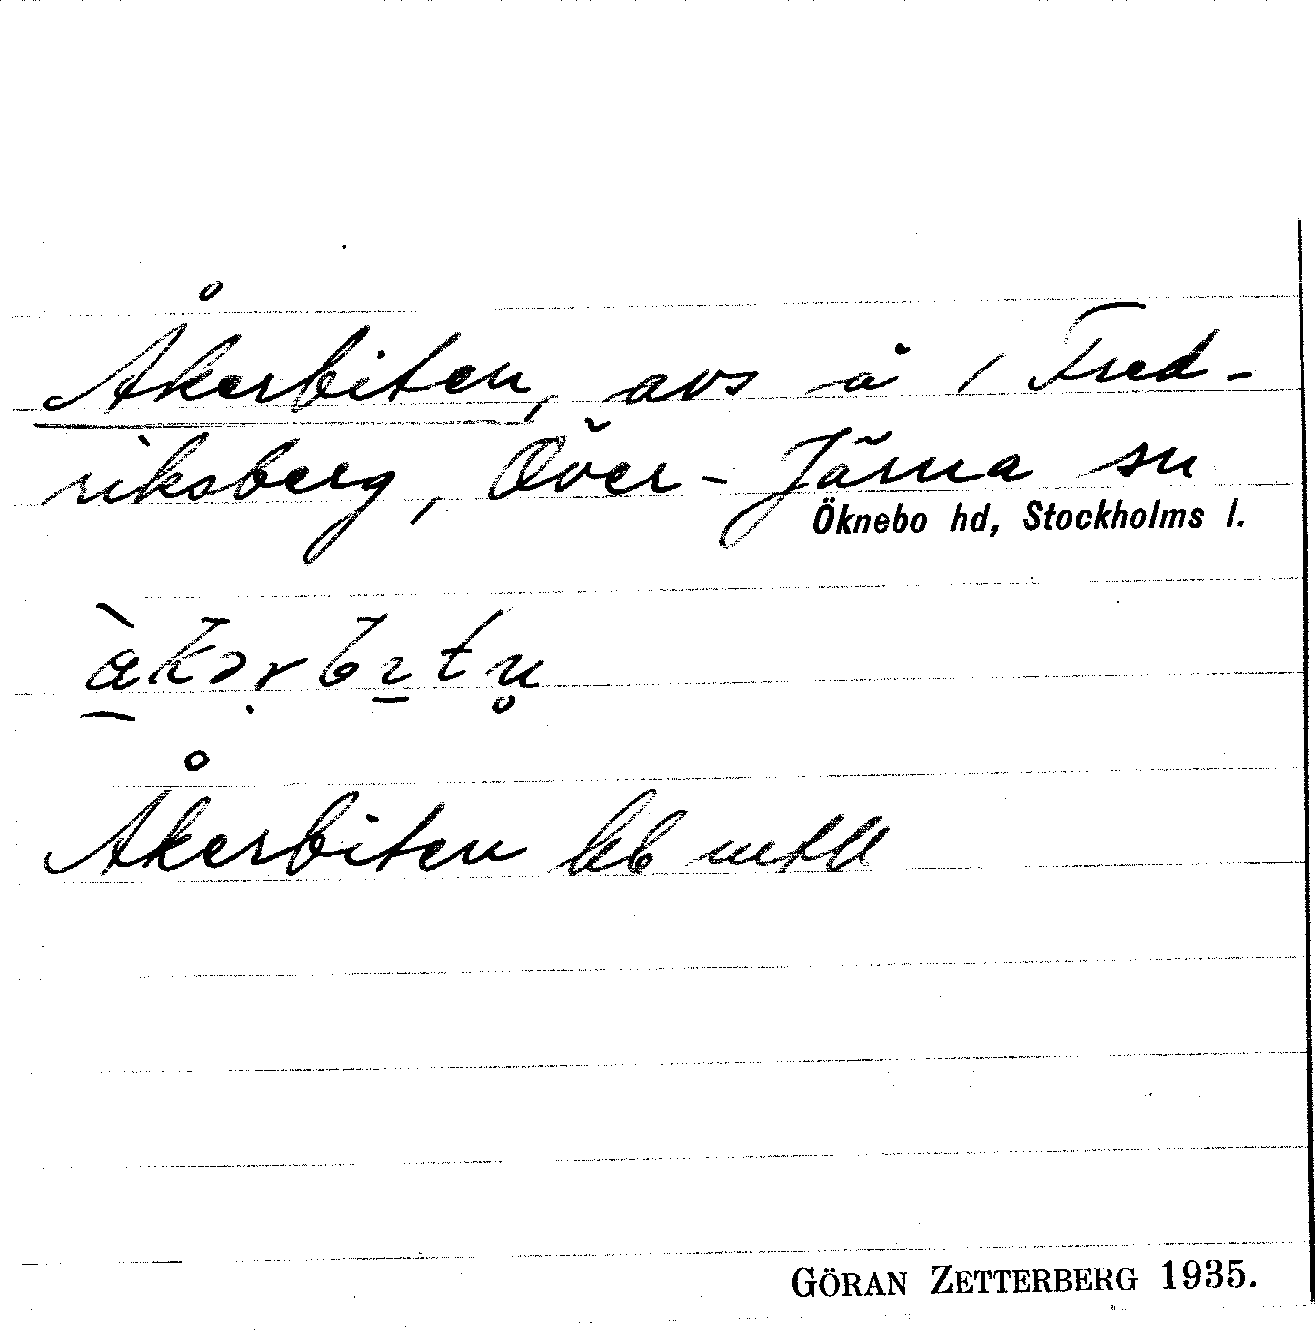 Åkerbiten, avs å i Fred-
riksberg, Över-Järna sn
Öknebo hd, Stockholms l.
Åkerbiten
GÖRAN ZETTERBERG 1935.